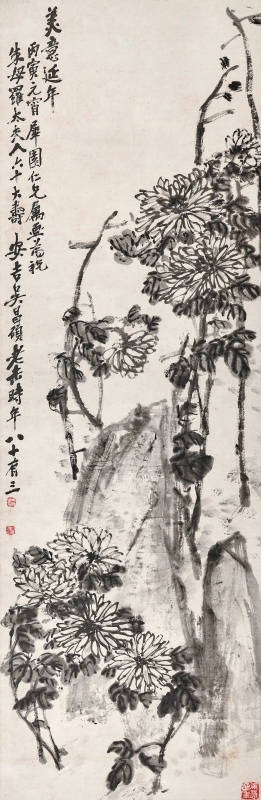 美意延年
丙寅元宵犀園仁兄属畫為祝
朱母羅太夫人六十大壽安吉吳昌碩老缶時年八十有三